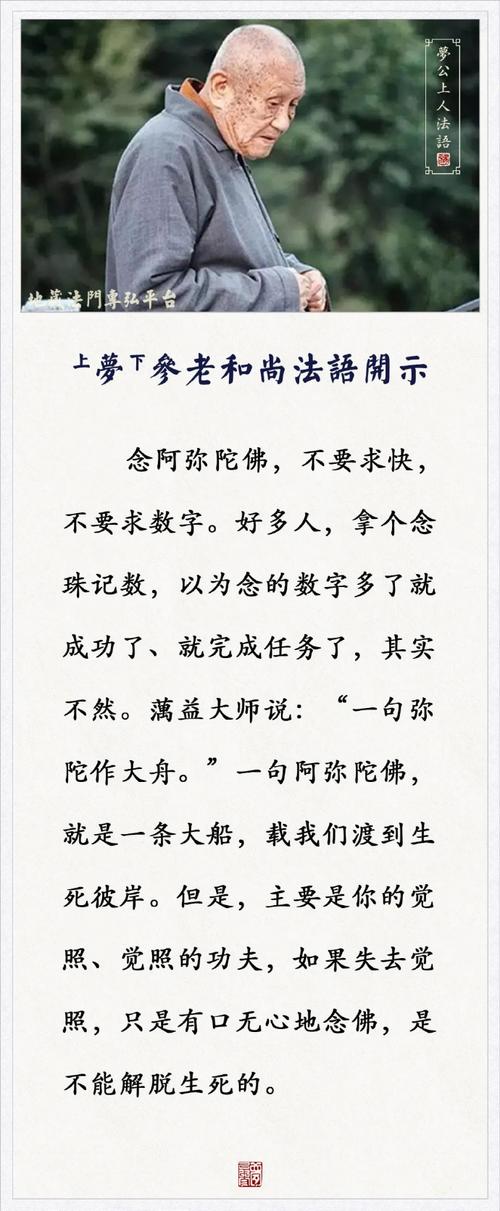 夢公上人法語
地藏法門專弘平台
上夢下參老和尚法語開示
念阿弥陀佛，不要求快，
不要求数字。好多人，拿个念
珠记数，以为念的数字多了就
成功了、就完成任务了，其实
不然。蕅益大师说：“一句弥
陀作大舟。”一句阿弥陀佛，
就是一条大船，载我们渡到生
死彼岸。但是，主要是你的觉
照、觉照的功夫，如果失去觉
照，只是有口无心地念佛，是
不能解脱生死的。